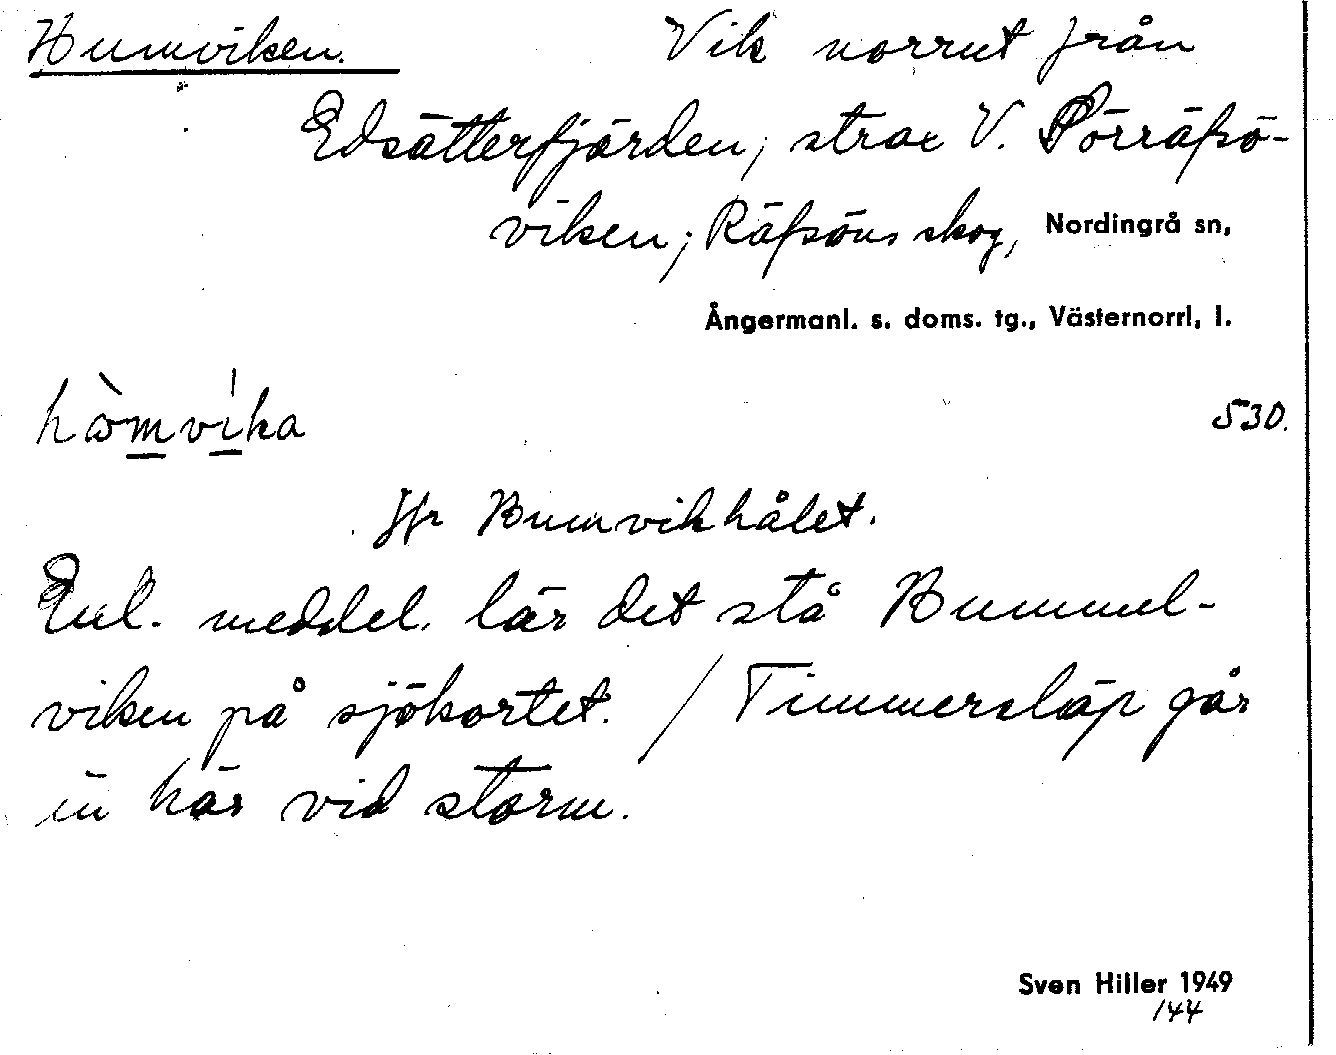 Humviken. Vik norrut från
Edsätterfjärden, strax V. Förräfsö-
viken; Räfsöns skog, Nordingrå sn,
Ångermanl. s. doms. tg., Västernorrl. l.
hòmvika 530.
Jfr Bumvikhålet.
Enl. meddel. lär det stå Bummel-
viken på sjökortet. / Timmersläp går
in här vid storm.
Sven Hiller 1949
144